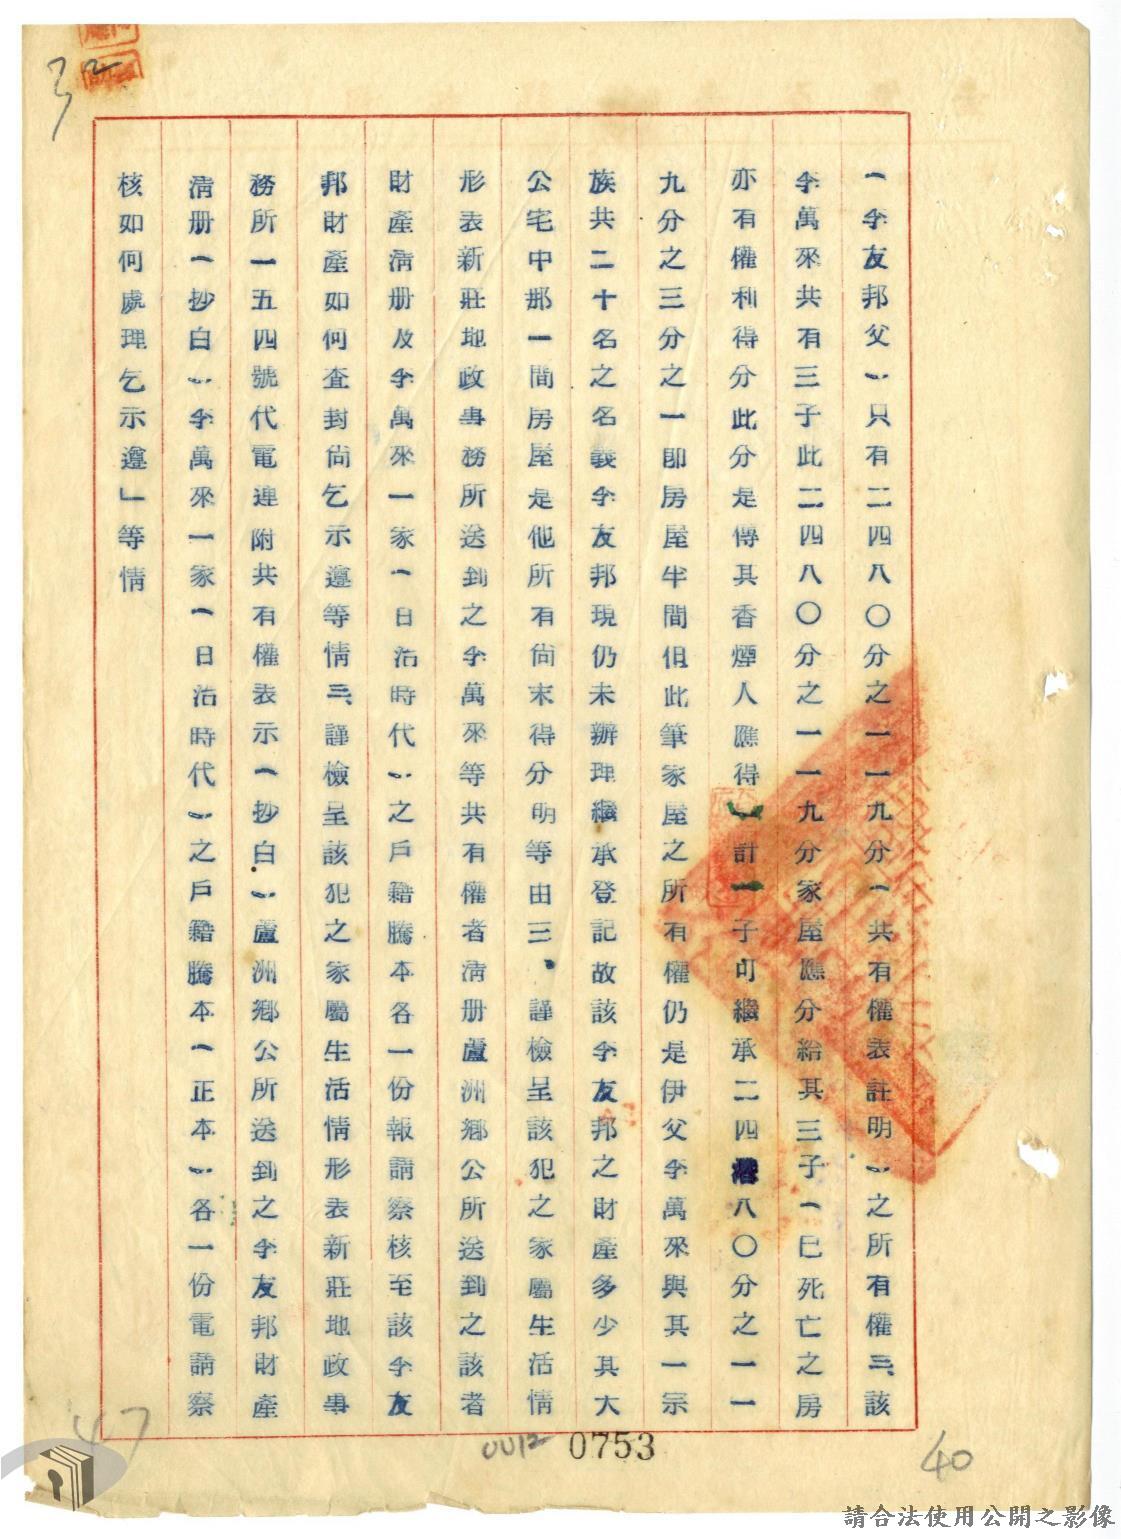 32
（李友邦父）只有二四八〇分之一一九分（共有權表註明）之所有權三、該
李萬來共有三子此二四八〇分之一一九分家屋應分給其三子（已死亡之房
亦有權利得分此分是傳其香煙人應得）計一子可繼承二四八〇分之一一
九分之三分之一即房屋半間但此筆家屋之所有權仍是伊父李萬來與其一宗
族共二十名之名義李友邦現仍未辦理繼承登記故該李友邦之財產多少其大
公宅中那一間房屋是他所有尚未得分明等由三、謹檢呈該犯之家屬生活情
形表新莊地政事務所送到之李萬來等共有權者清册蘆洲鄉公所送到之該者
財產清册及李萬來一家（日治時代）之戶籍騰本各一份報請察核至該李友
邦財產如何査封尚乞示遵等情三、謹檢呈該犯之家屬生活情形表新莊地政事
務所一五四號代電連附共有權表示（抄白）蘆洲鄉公所送到之李友邦財產
清册（抄白）李萬來一家（日治時代）之戶籍騰本（正本）各一份電請察
核如何處理乞示遵」等情
47
0012
0753
40
請合法使用公開之影像